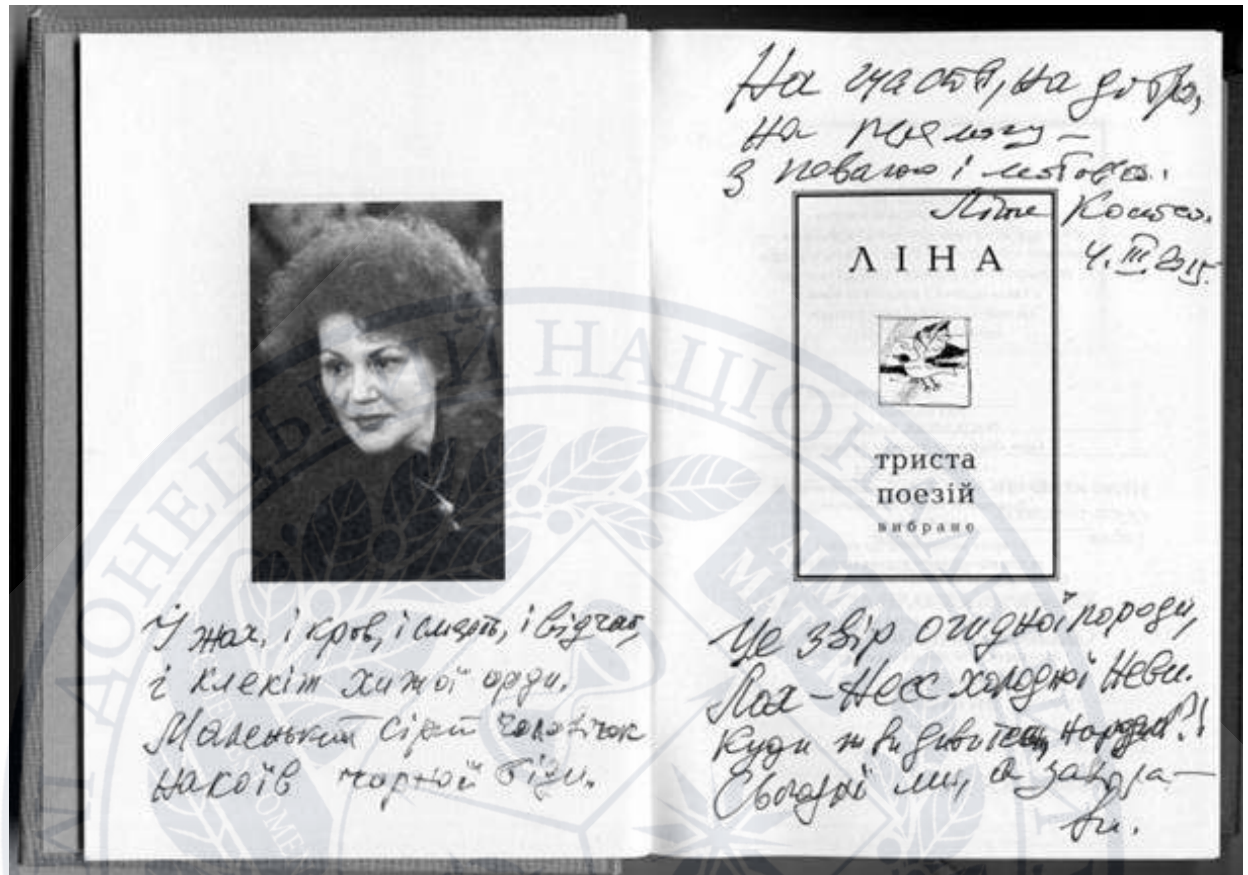 І жах, і кров, і смерть, і відчай,
і клекіт хижої орди.
Маленький сірий чоловічок
накоїв чорної біди.
На щастя, на добро,
на перемогу –
з повагою і любов'ю.
Ліна Костенко.
4. III 2015.
ЛІНА
триста
поезій
вибране
Це звір огидної породи,
Лох-Несс холодної Неви.
Куди ж ви дивитесь, народи?!
Сьогодні ми, а завтра –
ви.
ДОНЕЦЬКИЙ НАЦІОН